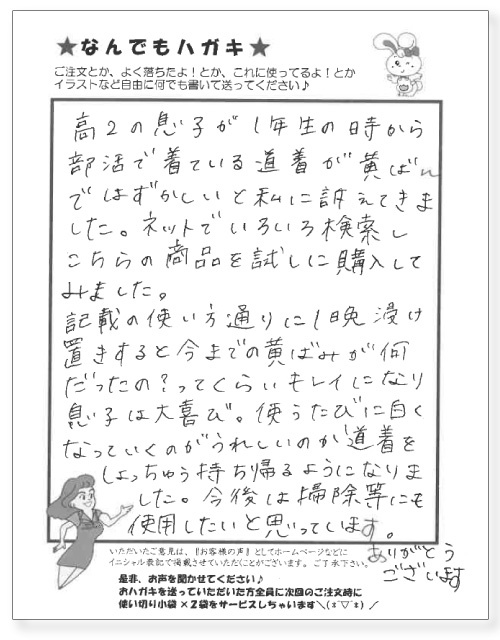 ★なんでもハガキ★
ご注文とか、よく落ちたよ!とか、これに使ってるよ!とか
イラストなど自由に何でも書いて送ってください♪
高2の息子が1年生の時から
部活で着ている道着が黄ばん
ではずかしいと私に訴えてきま
した。ネットでいろいろ検索し
こちらの商品を試しに購入して
みました。
記載の使い方通りに1晩浸け
置きすると今までの黄ばみが何
だったの?ってくらいキレイになり
息子は大喜び。使うたびに白く
なっていくのがうれしいのか道着を
しょっちゅう持ち帰るようになりま
した。今後は掃除等にも
使用したいと思っています。
ありがとう
ございます
いただいたご意見は、『お客様の声』としてホームページなどに
イニシャル表記で掲載させていただくことがございます。ご了承下さい。
是非、お声を聞かせてください♪
おハガキを送っていただいた方全員に次回のご注文時に
使い切り小袋×2袋をサービスしちゃいます＼(*´▽`*)／